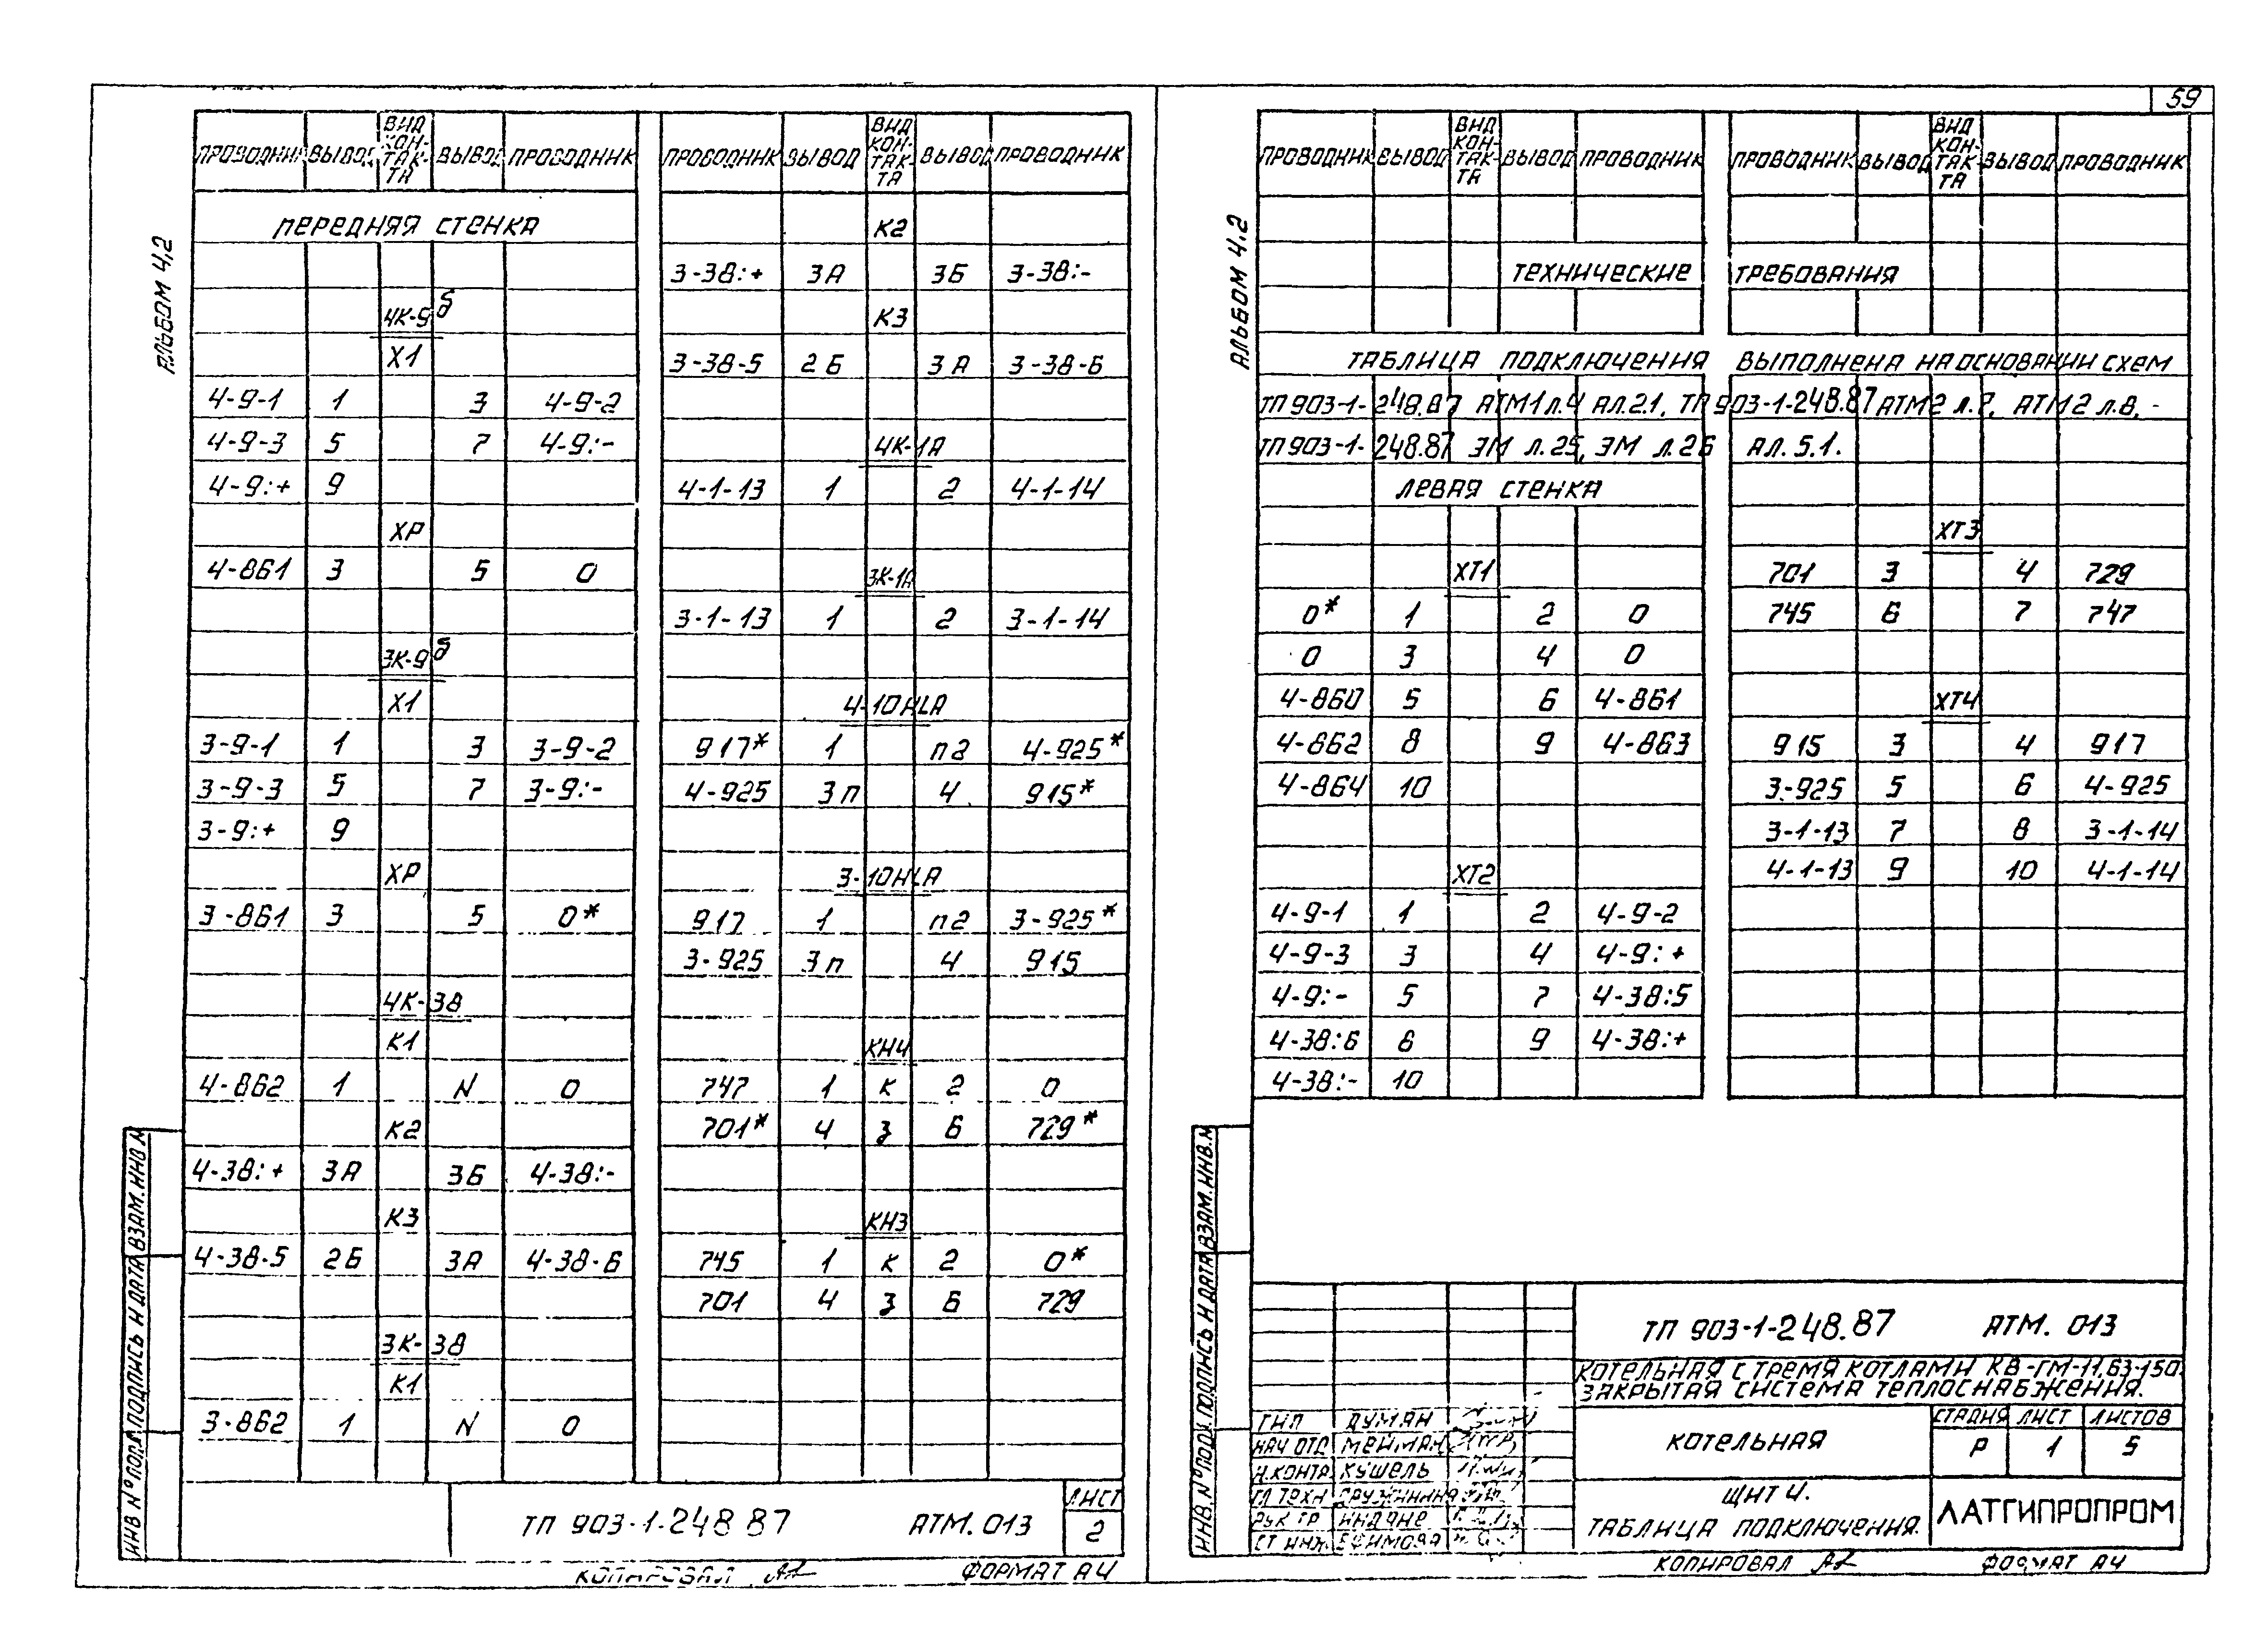 59
АЛЬБОМ 4.2
ПРОВОДНИК ВЫВОД ВИД КОН-ТАК-ТА ВЫВОД ПРОВОДНИК
ПЕРЕДНЯЯ СТЕНКА
4К-9б
X1
4-9-1 1 3 4-9-2
4-9-3 5 7 4-9:-
4-9:+ 9
ХР
4-861 3 5 0
3К-9б
X1
3-9-1 1 3 3-9-2
3-9-3 5 7 3-9:-
3-9:+ 9
ХР
3-861 3 5 0*
4К-38
К1
4-862 1 N 0
К2
4-38:+ 3А 3Б 4-38:-
К3
4-38-5 2Б 3А 4-38-6
3К-38
К1
3-862 1 N 0
ПРОВОДНИК ВЫВОД ВИД КОН-ТАК-ТА ВЫВОД ПРОВОДНИК
К2
3-38:+ 3А 3Б 3-38:-
К3
3-38-5 2Б 3А 3-38-6
4К-1А
4-1-13 1 2 4-1-14
3К-1А
3-1-13 1 2 3-1-14
4-10HLA
917* 1 п2 4-925*
4-925 3п 4 915*
3-10HLA
917 1 п2 3-925*
3-925 3п 4 915
КН4
747 1 К 2 0
701* 4 З 6 729*
КН3
745 1 К 2 0*
701 4 З 6 729
ТП 903-1-248 87 АТМ.013
ЛИСТ
2
ИНВ № ПОДЛ ПОДПИСЬ И ДАТА ВЗАМ.ИНВ.№
КОПИРОВАЛ
ФОРМАТ А4
АЛЬБОМ 4.2
ПРОВОДНИК ВЫВОД ВИД КОН-ТАК-ТА ВЫВОД ПРОВОДНИК ПРОВОДНИК ВЫВОД ВИД КОН-ТАК-ТА ВЫВОД ПРОВОДНИК
ТЕХНИЧЕСКИЕ ТРЕБОВАНИЯ
ТАБЛИЦА ПОДКЛЮЧЕНИЯ ВЫПОЛНЕНА НА ОСНОВАНИИ СХЕМ
ТП 903-1-248.87 АТМ1 л.4 АЛ.2.1, ТП 903-1-248.87 АТМ2 л.7, АТМ2 л.8, -
ТП 903-1-248.87 ЭМ л.25, ЭМ л.26 АЛ.5.1.
ЛЕВАЯ СТЕНКА
ХТ1
0* 1 2 0
0 3 4 0
4-860 5 6 4-861
4-862 8 9 4-863
4-864 10
ХТ2
4-9-1 1 2 4-9-2
4-9-3 3 4 4-9:+
4-9:- 5 7 4-38:5
4-38:6 8 9 4-38:+
4-38:- 10
ХТ3
701 3 4 729
745 6 7 747
ХТ4
915 3 4 917
3-925 5 6 4-925
3-1-13 7 8 3-1-14
4-1-13 9 10 4-1-14
ТП 903-1-248.87 АТМ. 013
КОТЕЛЬНАЯ С ТРЕМЯ КОТЛАМИ КВ-ГМ-11,63-150.
ЗАКРЫТАЯ СИСТЕМА ТЕПЛОСНАБЖЕНИЯ.
ГИП ДУМАН
НАЧ ОТД МЕЙМАН
Н.КОНТР КУШЕЛЬ
ГЛ ТЕХН ДРУЖИНИНА
РУК ГР ИНДАНЕ
СТ ИНЖ ЕФИМОВА
КОТЕЛЬНАЯ
СТАДИЯ ЛИСТ ЛИСТОВ
Р 1 5
ЩИТ 4.
ТАБЛИЦА ПОДКЛЮЧЕНИЯ.
ЛАТГИПРОПРОМ
ИНВ. № ПОДЛ. ПОДПИСЬ И ДАТА ВЗАМ.ИНВ.№
КОПИРОВАЛ
ФОРМАТ А4